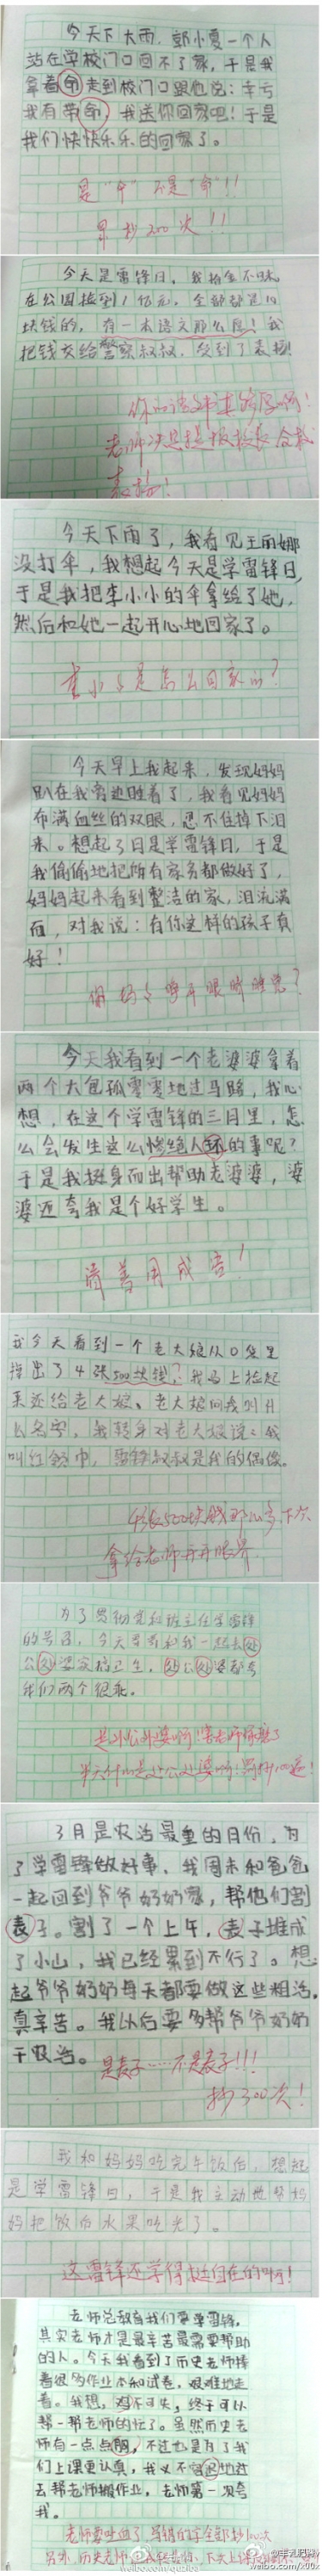 今天下大雨，郭小夏一个人
站在学校门口回不了家，于是我
拿着命走到校门口跟他说：幸亏
我有带命，我送你回家吧！于是
我们快快乐乐的回家了。
是"伞"不是"命"！！
罚抄200次！！
今天是雷锋日，我拾金不昧
在公园捡到1亿元，全部都是10
块钱的，有一本语文那么厚！我
把钱交给警察叔叔，受到了表扬！
你的语文书真够厚啊！
老师决定提报校长合教
表扬！
今天下雨了，我看见王丽娜
没打伞，我想起今天是学雷锋日，
于是我把李小小的伞拿给了她，
然后和她一起开心地回家了。
李小小是怎么回家的？
今天早上我起来，发现妈妈
趴在我旁边睡着了，我看见妈妈
布满血丝的双眼，忍不住掉下泪
来。想起3日是学雷锋日，于是
我偷偷地把所有家务都做好了，
妈妈起来看到整洁的家，泪流满
面，对我说：有你这样的孩子真
好！
你妈妈睁开眼睛睡觉？
今天我看到一个老婆婆拿着
两个大包孤零零地过马路，我心
想，在这个学雷锋的三月里，怎
么会发生这么惨绝人环的事呢？
于是我挺身而出帮助老婆婆，婆
婆还夸我是个好学生。
请善用成语！
我今天看到一个老大娘从口袋里
掉出了4张500块钱，我马上捡起
来还给老大娘、老大娘问我叫什
么名字，我转身对老大娘说：我
叫红领巾，雷锋叔叔是我的偶像。
4张500块钱那么多下次
拿给老师开开眼界
为了贯彻党和班主任学雷锋
的号召，今天哥哥和我一起去处
公处婆家搞卫生，处公处婆都夸
我们两个很乖。
是外公外婆啊！害老师你想了
半天什么是处公处婆啊！罚抄100遍！
3月是农活最重的月份，为
了学雷锋做好事，我周末和爸爸
一起回到爷爷奶奶家，帮他们割
表子。割了一个上午，表子堆成
了小山，我已经累到不行了。想
起爷爷奶奶每天都要做这些粗活，
真辛苦。我以后要多帮爷爷奶奶
干农活。
是麦子……不是表子！！！
抄300次！
我和妈妈吃完午饭后，想起
是学雷锋日，于是我主动地帮妈
妈把饭后水果吃光了。
这雷锋还学得挺自在的啊！
老师总教育我们要学雷锋，
其实老师才是最辛苦最需要帮助
的人。今天我看到了历史老师捧
着很多作业本和试卷，艰难地走
着。我想，机不可失，终于可以
帮一帮老师的忙了。虽然历史老
师有一点点胸，不过也是为了我
们上课更认真，我义不容辞地过
去帮老师搬作业，老师第一次夸
我。
老师要吐血了，写错的字全部抄100次